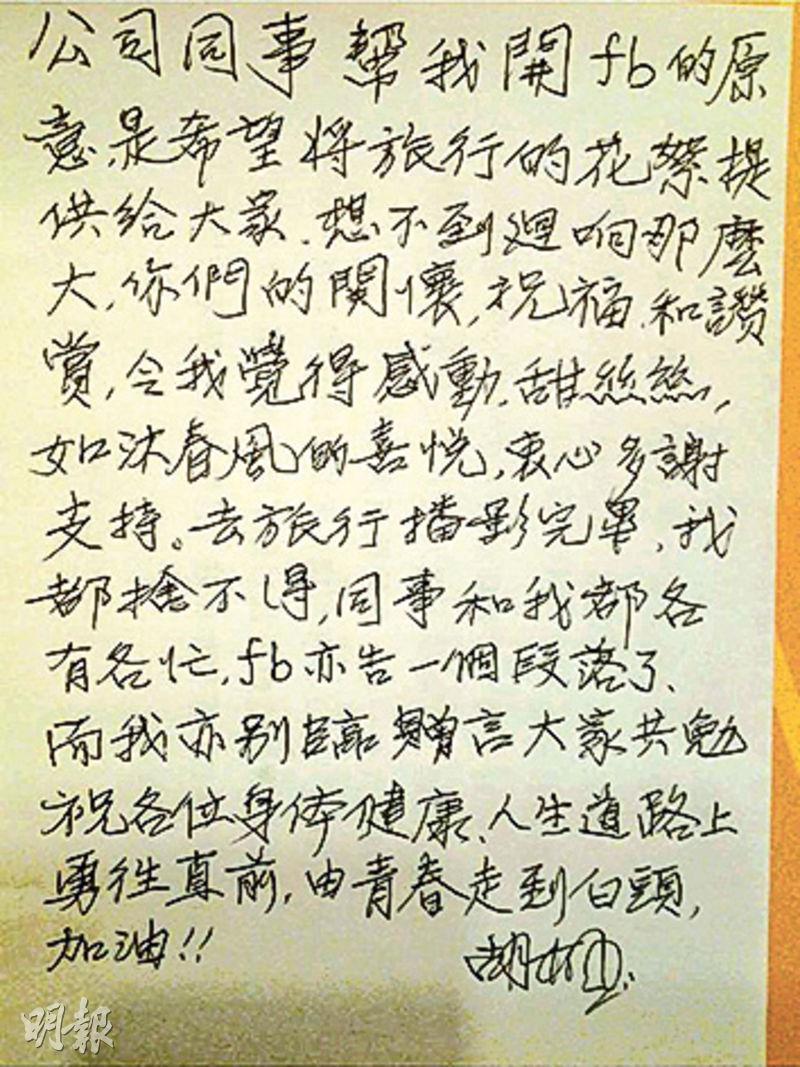 公司同事幫我開fb的原
意,是希望將旅行的花絮提
供給大家.想不到迴响那麼
大,你們的関懷,祝福.和讚
賞,令我覺得感動.甜絲絲,
如沐春風的喜悅,衷心多謝
支持。去旅行播影完畢,我
都捨不得,同事和我都各
有各忙,fb亦告一個段落了、
而我亦别臨贈言大家共勉
祝各位身体健康、人生道路上
勇往直前,由青春走到白頭,
加油!!
明報